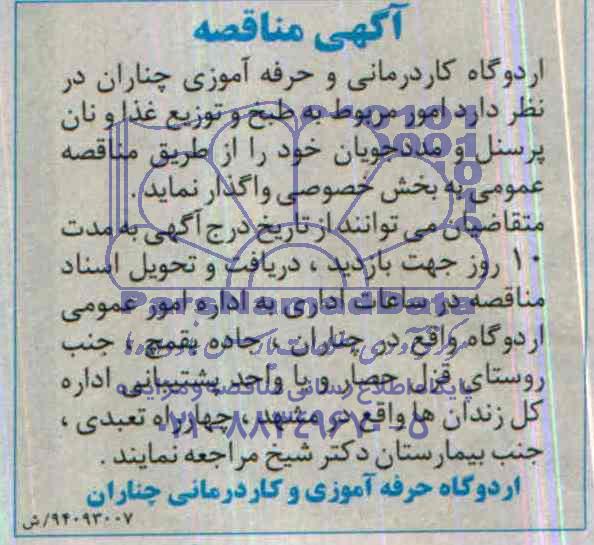 آگهی مناقصه
اردوگاه کاردرمانی و حرفه آموزی چناران در
نظر دارد امور مربوط به طبخ و توزیع غذا و نان
پرسنل و مددجویان خود را از طریق مناقصه
عمومی به بخش خصوصی واگذار نماید.
متقاضیان می توانند از تاریخ درج آگهی به مدت
۱۰ روز جهت بازدید ، دریافت و تحویل اسناد
مناقصه در ساعات اداری به اداره امور عمومی
اردوگاه واقع در چناران ، جاده بقمچ ، جنب
روستای قزل حصار و یا واحد پشتیبانی اداره
کل زندان ها واقع در مشهد ، چهارراه تعبدی ،
جنب بیمارستان دکتر شیخ مراجعه نمایند .
اردوگاه حرفه آموزی و کاردرمانی چناران
۹۴۰۹۳۰۰۷/ش
ParsNamadData
پایگاه اطلاع رسانی مناقصه و مزایده
۰۲۱-۸۸۳۴۹۶۷۰-۵